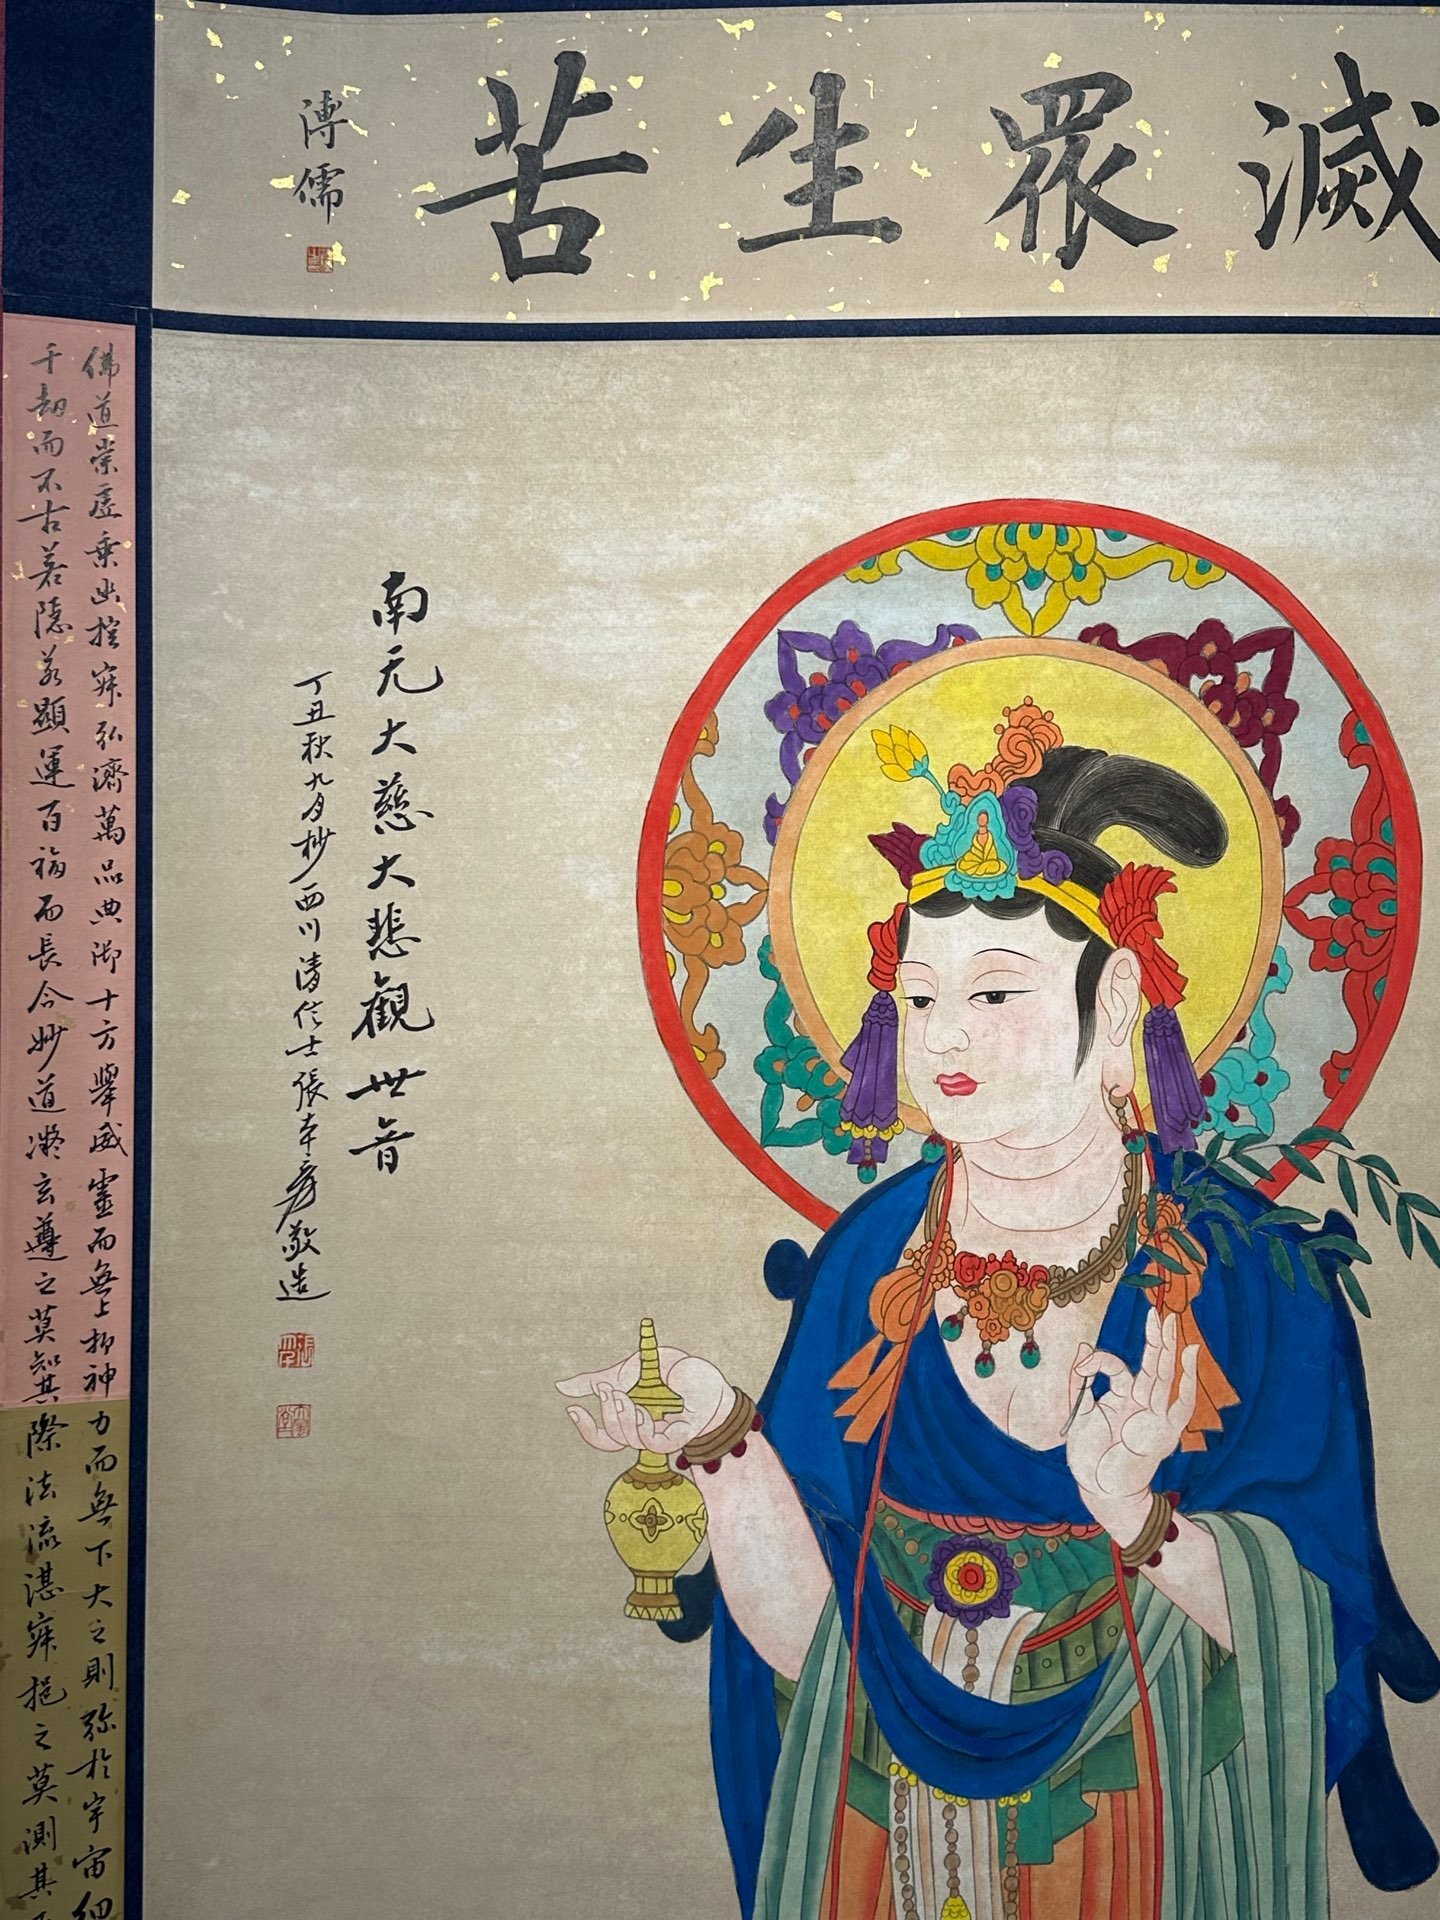 滅眾生苦
溥儒
南无大慈大悲觀世音
丁丑秋九月杪西川清信士張大千爰敬造
佛道崇虛乘幽控寂弘濟萬品典御十方舉威靈而無上抑神力而無下大之則彌於宇宙細
千劫而不古若隱若顯運百福而長今妙道凝玄遵之莫知其際法流湛寂挹之莫測其